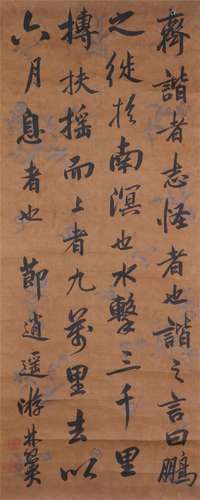 齊諧者志怪者也諧之言曰鵬
之徙於南溟也水擊三千里
摶扶搖而上者九萬里去以
六月息者也 節逍遥游 林奠